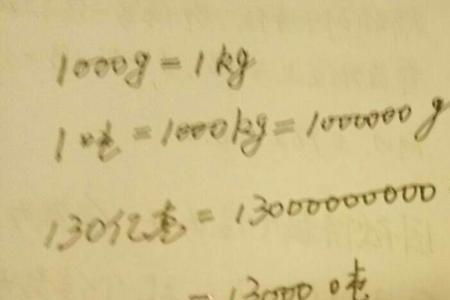 1000g = 1kg
1吨 = 1000kg = 1000000 g
130亿克 = 13000000000
= 13000吨